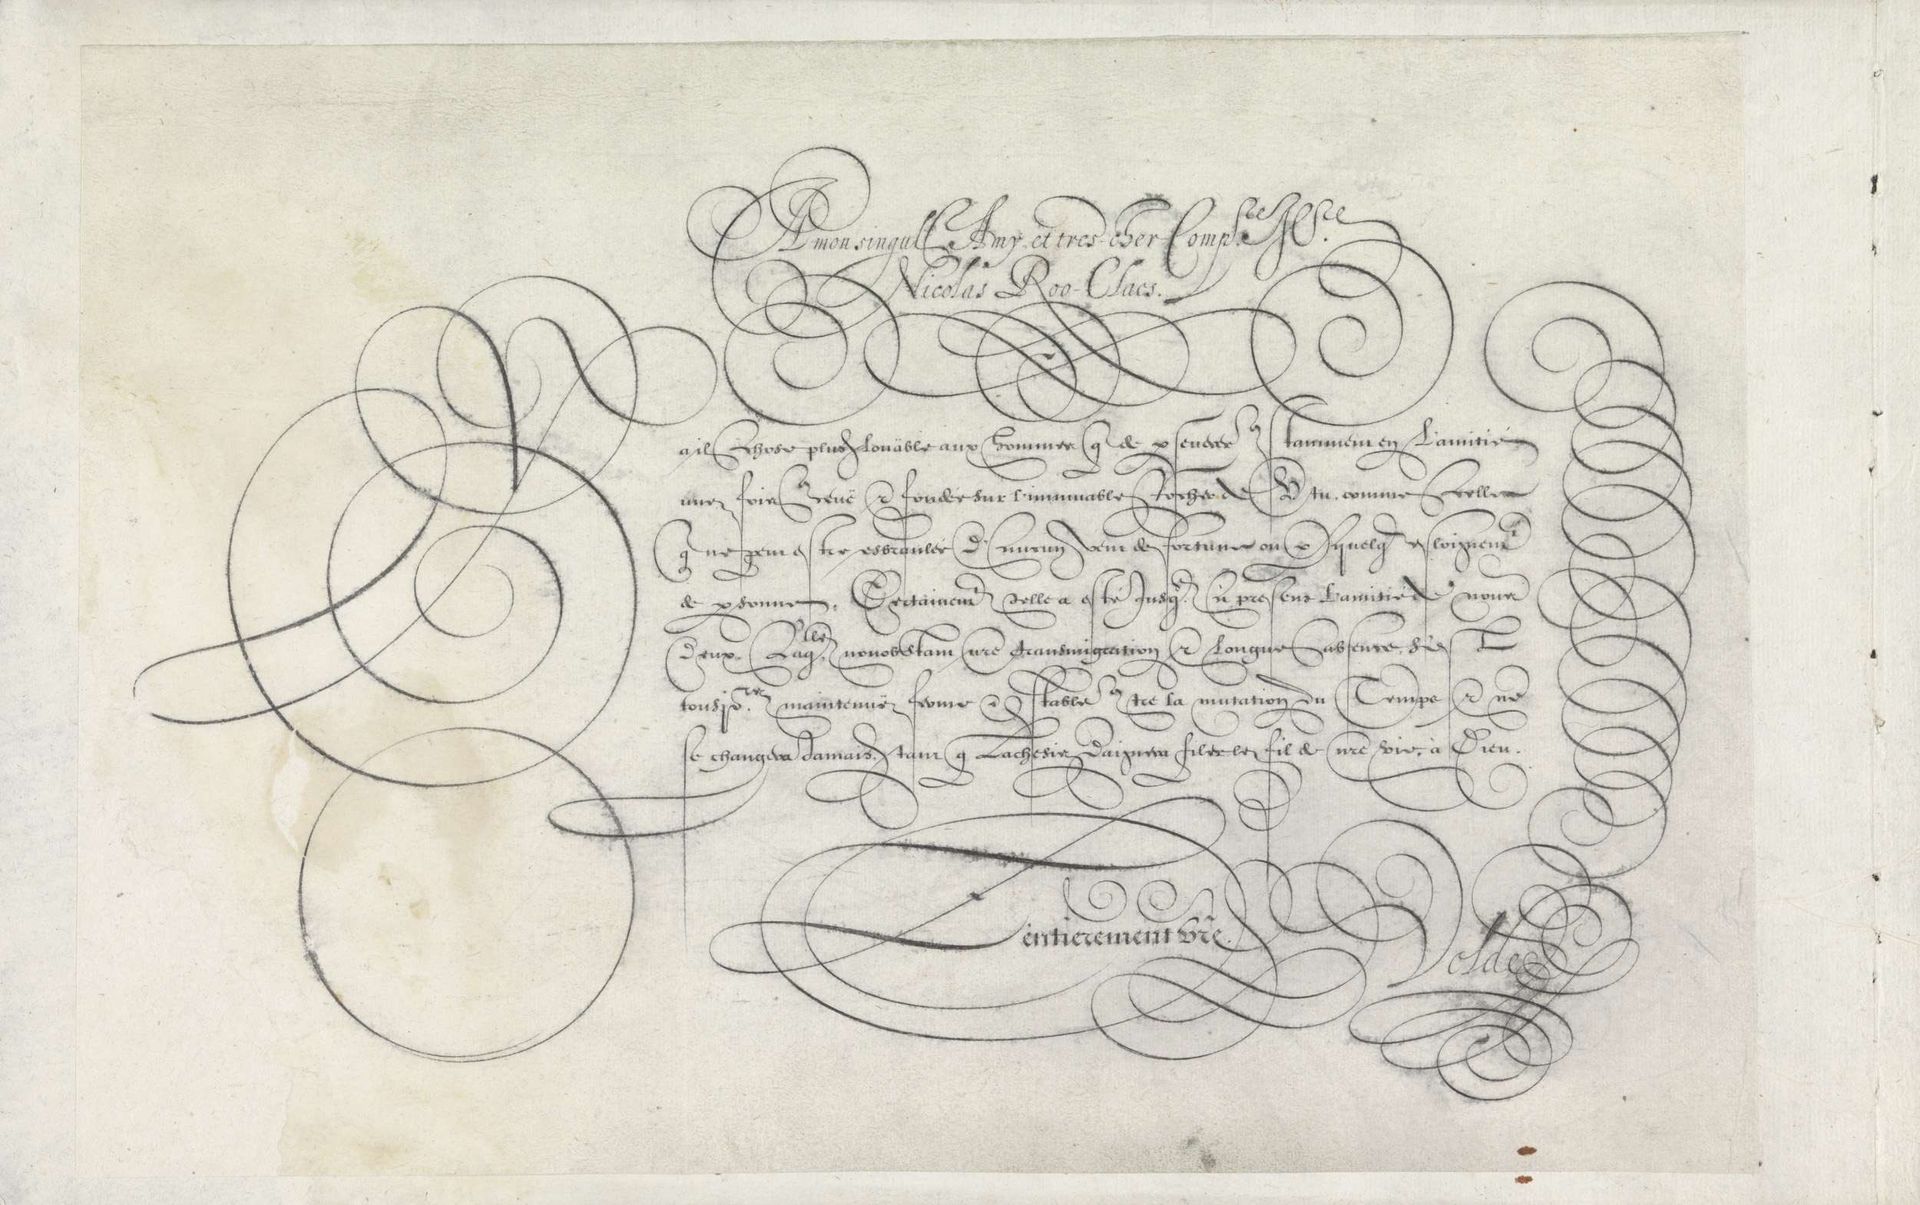 A mon singull. Amy, et tres-cher Comp.
Nicolas Roo-Claes.
Y a jl Chose plus Louäble aux Hommes q de en L'amitié
une fois & fondée sur L'immuable Rocher de comme Celle
q ne peut estre esbranlée d'aucun vent de fortune ou quelq esloignemt
de psonnes, Certainemt telle a esté Jusq. present L'amitié de nous
Deux, Laqlle. nonobstant nre transmigration & Longue absence, s'est
tousjrs. maintenuë ferme & stable la mutation du Temps & ne
se changera Jamais, tant q Lachesis Daignera filer le fil de nre vie, à Dieu.
entierement vre.
Velde